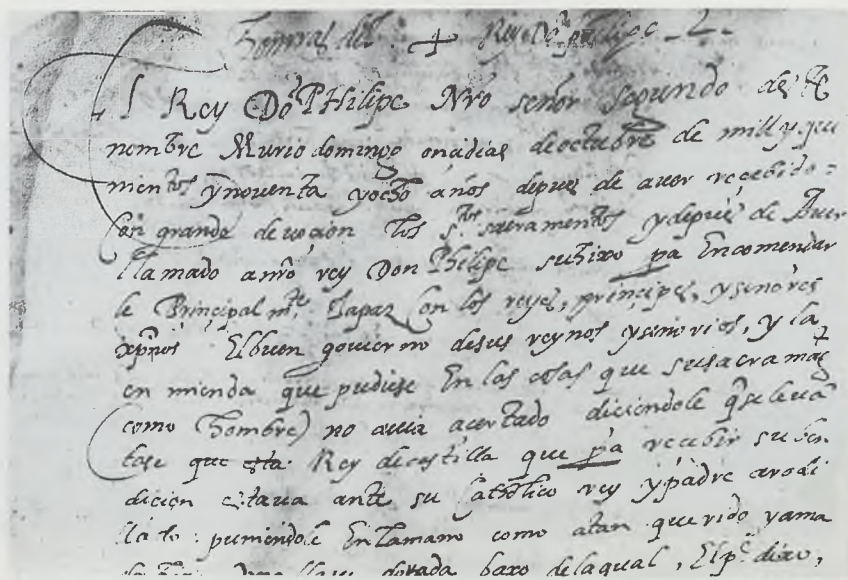 honrras del + Rey Dō philipe 2.
El Rey Dō PHilipe Nrō señor segundo de
nombre Murio domingo onçedias de octubre de mill y qui
nientos ynoventa yocho años depues de aver recebido
con grande devoçion los s.tos sacramentos ydepues de aver
llamado anrō rey Don Philipe suhixo pa Encomendar
le Principal m.te Lapaz con los reyes, principes, y señores
xp̄nos Elbuen govierno desus reynos yseñorios, y la
en mienda que pudiese En las cosas que susacra mag
(como hombre) no avia acertado diciendole q̄se leva
tase que Rey decastilla que pa recebir suben
dicion estava ante su Catholico rey ypadre arodi
llado poniendole Enlamano como atan querido yama
llave dorada baxo delaqual, El dixo,